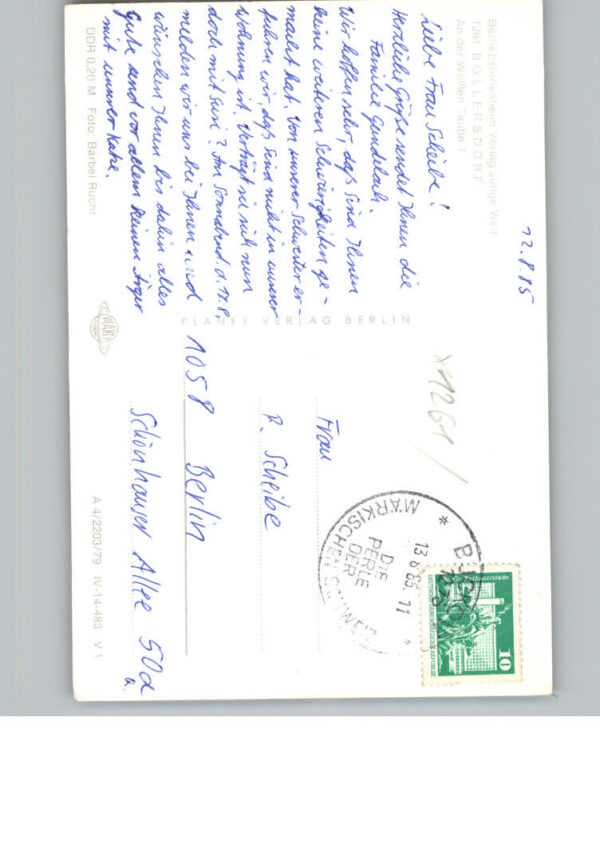 Betriebsferienheim Verlag Junge Welt
1261 BOLLERSDORF
An der Weißen Taube 7
12.8.85
Liebe Frau Scheibe!
Herzliche Grüße sendet Ihnen die
Familie Gundelach.
Wir hoffen sehr, daß Susi Ihnen
keine weiteren Schwierigkeiten ge-
macht hat. Von unserer Schwester er-
fuhren wir, daß Susi nicht in unserer
Wohnung ist. Verträgt sie sich nun
doch mit Susi? Am Sonnabend d. 17.8.
melden wir uns bei Ihnen und
wünschen Ihnen bis dahin alles
Gute und vor allem keinen Ärger
mit unserer Katze.
DDR 0,20 M Foto: Bärbel Rücht
PLANET VERLAG BERLIN
PLANET
X1261/
BUCKOW
13.8.85.-11
DIE
PERLE
DER
MÄRKISCHEN SCHWEIZ
10
Frau
R. Scheibe
1058 Berlin
Schönhauser Allee 50a
A 4/2203/79 IV-14-483 V 1